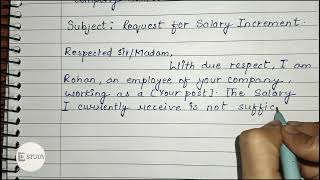 Subject: Request for Salary Increment.
Respected Sir/Madam,
With due respect, I am
Rohan, an employee of your company,
working as a [Your post]. The Salary
I currently receive is not suffic
STUDY